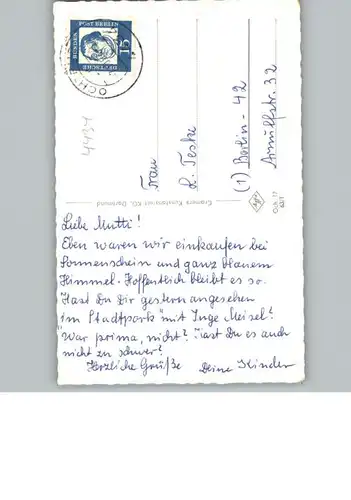 DEUTSCHE
BUNDESPOST BERLIN
15
OCH
4434
Frau
L. Teske
(1) Berlin - 42
Arnulfstr. 32
Cramers Kunstanstalt KG., Dortmund
Och 13
Liebe Mutti!
Eben waren wir einkaufen bei
Sonnenschein und ganz blauem
Himmel. Hoffentlich bleibt es so.
Hast Du Dir gestern angesehen
im Stadtpark" mit Inge Meisel?
War prima, nicht? Hast Du es auch
nicht zu schwer?
Herzliche Grüße Deine Kinder